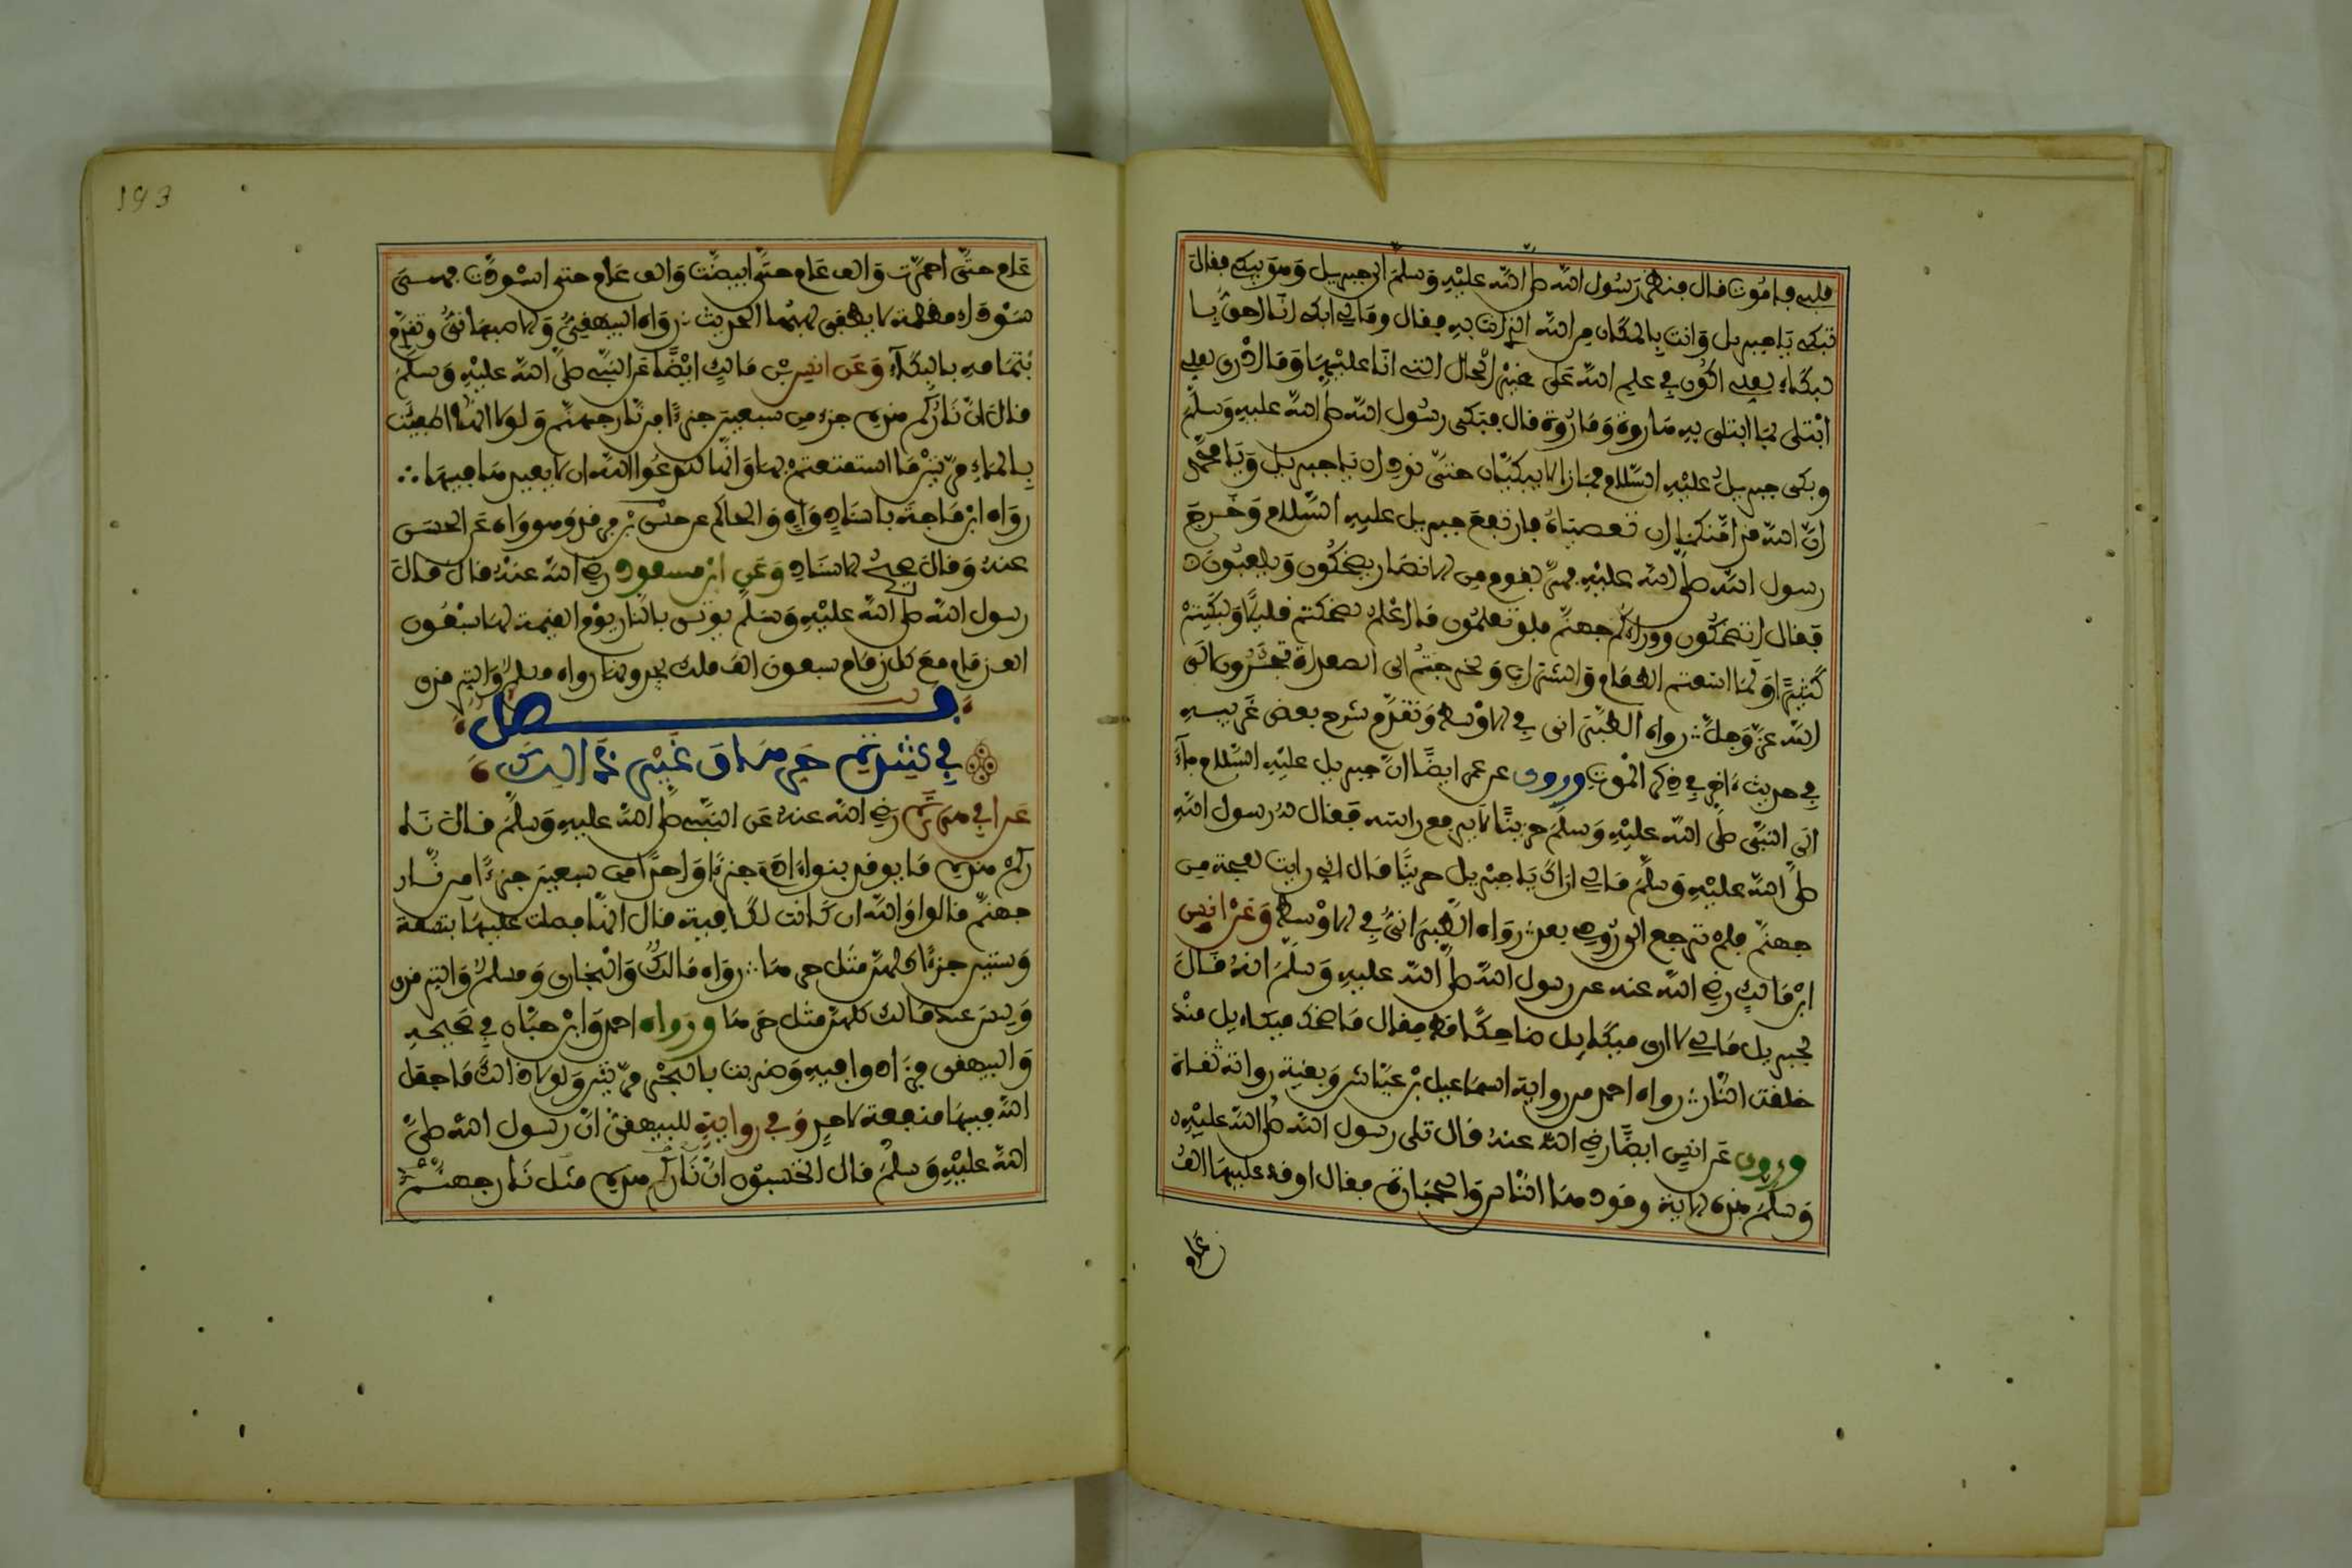 قلبي فاموت قال فنظر رسول الله صلى الله عليه وسلم الى جبريل وهو يبكى فقال
تبكى يا جبريل وانت بالمكان من الله الذي انت به فقال ومالي لا ابكى انا احق با
لبكاء لعلي اكون في علم الله على غير الحال التي انا عليها وما ادرى لعلي
ابتلى بما ابتلى به هاروت وماروت قال فبكى رسول الله صلى الله عليه وسلم
وبكى جبريل عليه السلام فما زالا يبكيان حتى نوديا ان يا جبريل ويا محمد
ان الله قد امنكما ان تعصياه فارتفع جبريل عليه السلام وخرج
رسول الله صلى الله عليه فمر بقوم من الانصار يضحكون ويلعبون
فقال اتضحكون ووراءكم جهنم فلو تعلمون ما اعلم لضحكتم قليلا ولبكيتم
كثيرا ولما اسغتم الطعام والشراب ولخرجتم الى الصعدات تجئرون الى
الله عز وجل رواه الطبراني في الاوسط وتقدم شرح بعض غريبه
في حديث ءاخر في ذكر الموت وروى عن عمر ايضا ان جبريل عليه السلام جاء
الى النبي صلى الله عليه وسلم حزينا لا يرفع راسه فقال له رسول الله
صلى الله عليه وسلم مالي اراك يا جبريل حزينا قال اني رايت لفحة من
جهنم فلم ترجع الي روحي بعد رواه الطبراني في الاوسط وعن انس
ابن مالك رضي الله عنه عن رسول الله صلى الله عليه وسلم انه قال
لجبريل مالي لا ارى ميكاءيل ضاحكا قط فقال ما ضحك ميكاءيل منذ
خلقت النار رواه احمد من رواية اسماعيل بن عياش وبقية رواته ثقاة
وروى عن انس ايضا رضي الله عنه قال تلى رسول الله صلى الله عليه
وسلم هذه الاية وقودها الناس والحجارة فقال اوقد عليها الف
عام
193
عام حتى احمرت والف عام حتى ابيضت والف عام حتى اسودت فهي
سوداء مظلمة لا يطفى لهبها الحديث رواه البيهقي والاصبهاني وتقدم
بتمامه بالبكاء وعن انس بن مالك ايضا عن النبي صلى الله عليه وسلم
قال ان ناركم هذه جزء من سبعين جزءا من نار جهنم ولولا انها اطفيت
بالماء مرتين ما استمتعتم بها وانها لتدعوا الله ان لا يعيدها فيها
رواه ابن ماجة باسناد واه والحاكم عن جسر بن فرقد وهو واه عن الحسن
عنه وقال صحيح الاسناد وعن ابن مسعود رضي الله عنه قال قال
رسول الله صلى الله عليه وسلم يوتى بالنار يوم القيمة لها سبعون
الف زمام مع كل زمام سبعون الف ملك يجرونها رواه مسلم والترمذي
فصل
في شدة حرها وغير ذالك
عن ابي هريرة رضي الله عنه عن النبي صلى الله عليه وسلم قال نا
ركم هذه ما يوقد بنواءادم جزءا واحدا من سبعين جزءا من نار
جهنم قالوا والله ان كانت لكافية قال انها فضلت عليها بتسعة
وستين جزءا كلهن مثل حرها رواه مالك والبخاري ومسلم والترمذي
وليس عند مالك كلهن مثل حرها ورواه احمد وابن حبان في صحيحه
والبيهقي فزادوا فيه وضربت بالبحر مرتين ولولا ذالك ما جعل
الله فيها منفعة لاحد وفي رواية للبيهقي ان رسول الله صلى
الله عليه وسلم قال اتحسبون ان ناركم هذه مثل نار جهنم